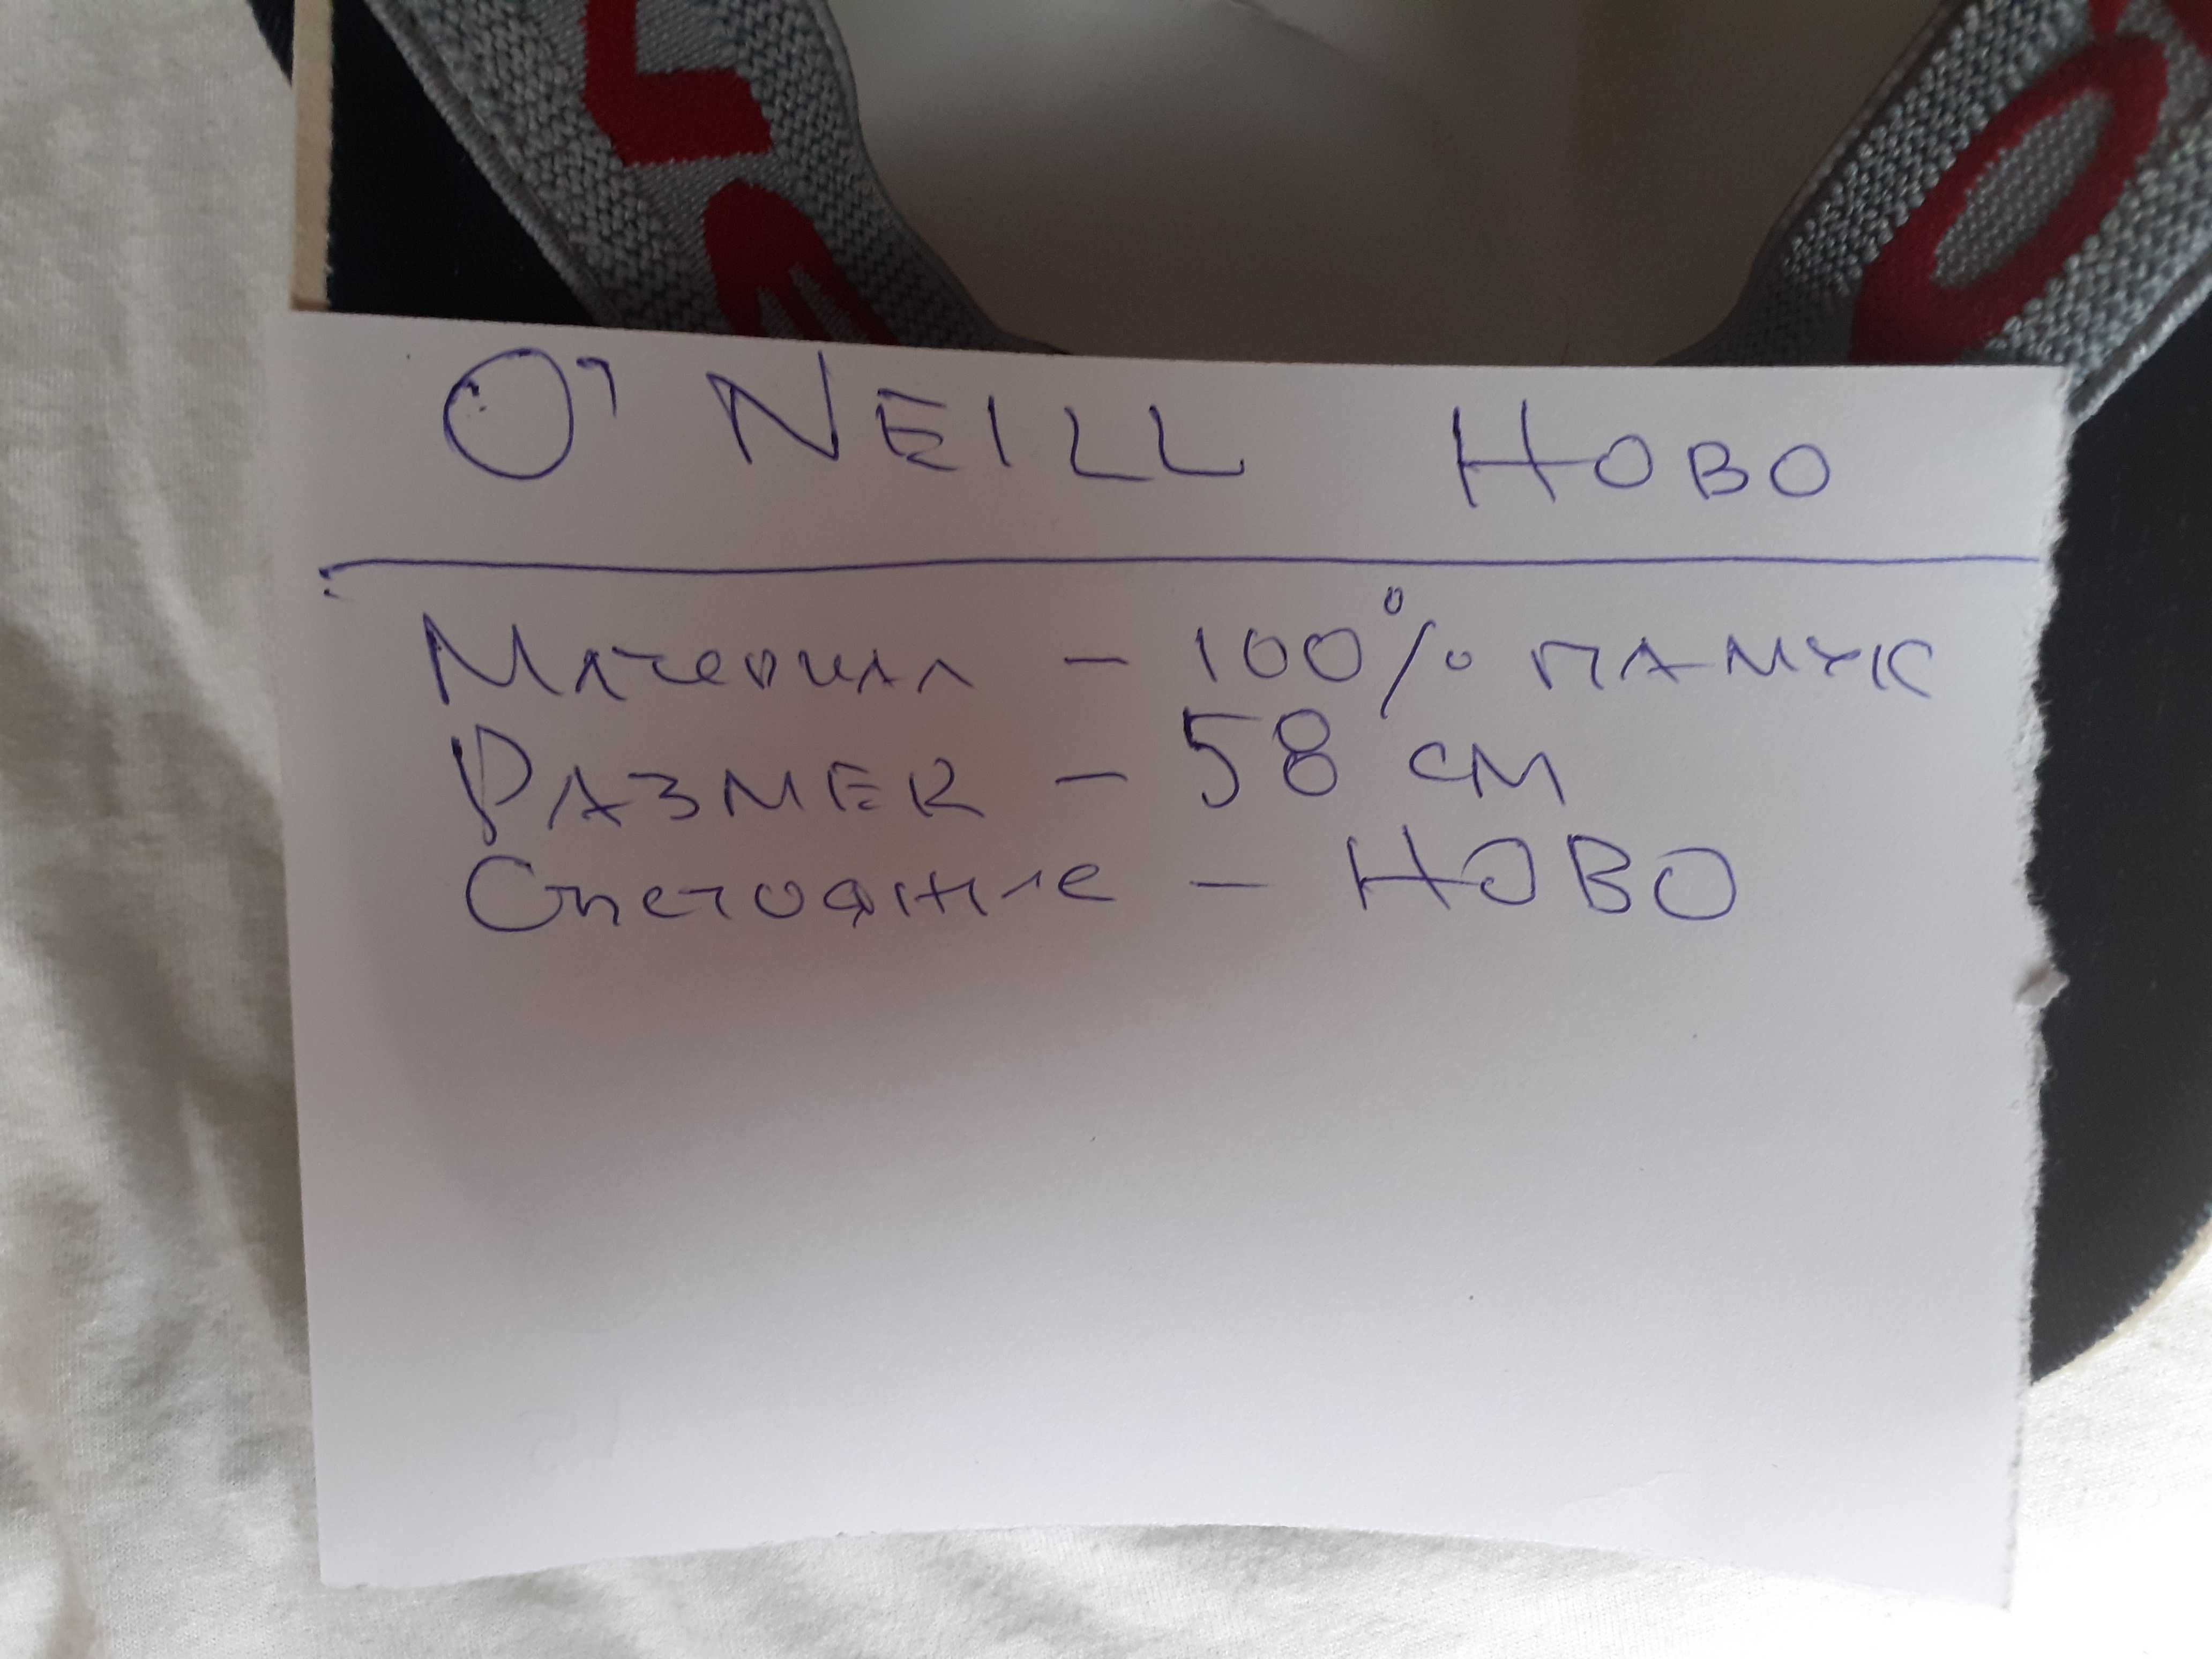 O' NEILL НОВО
Материал - 100% ПАМУК
РАЗМЕR - 58 см
Състояние - НОВО